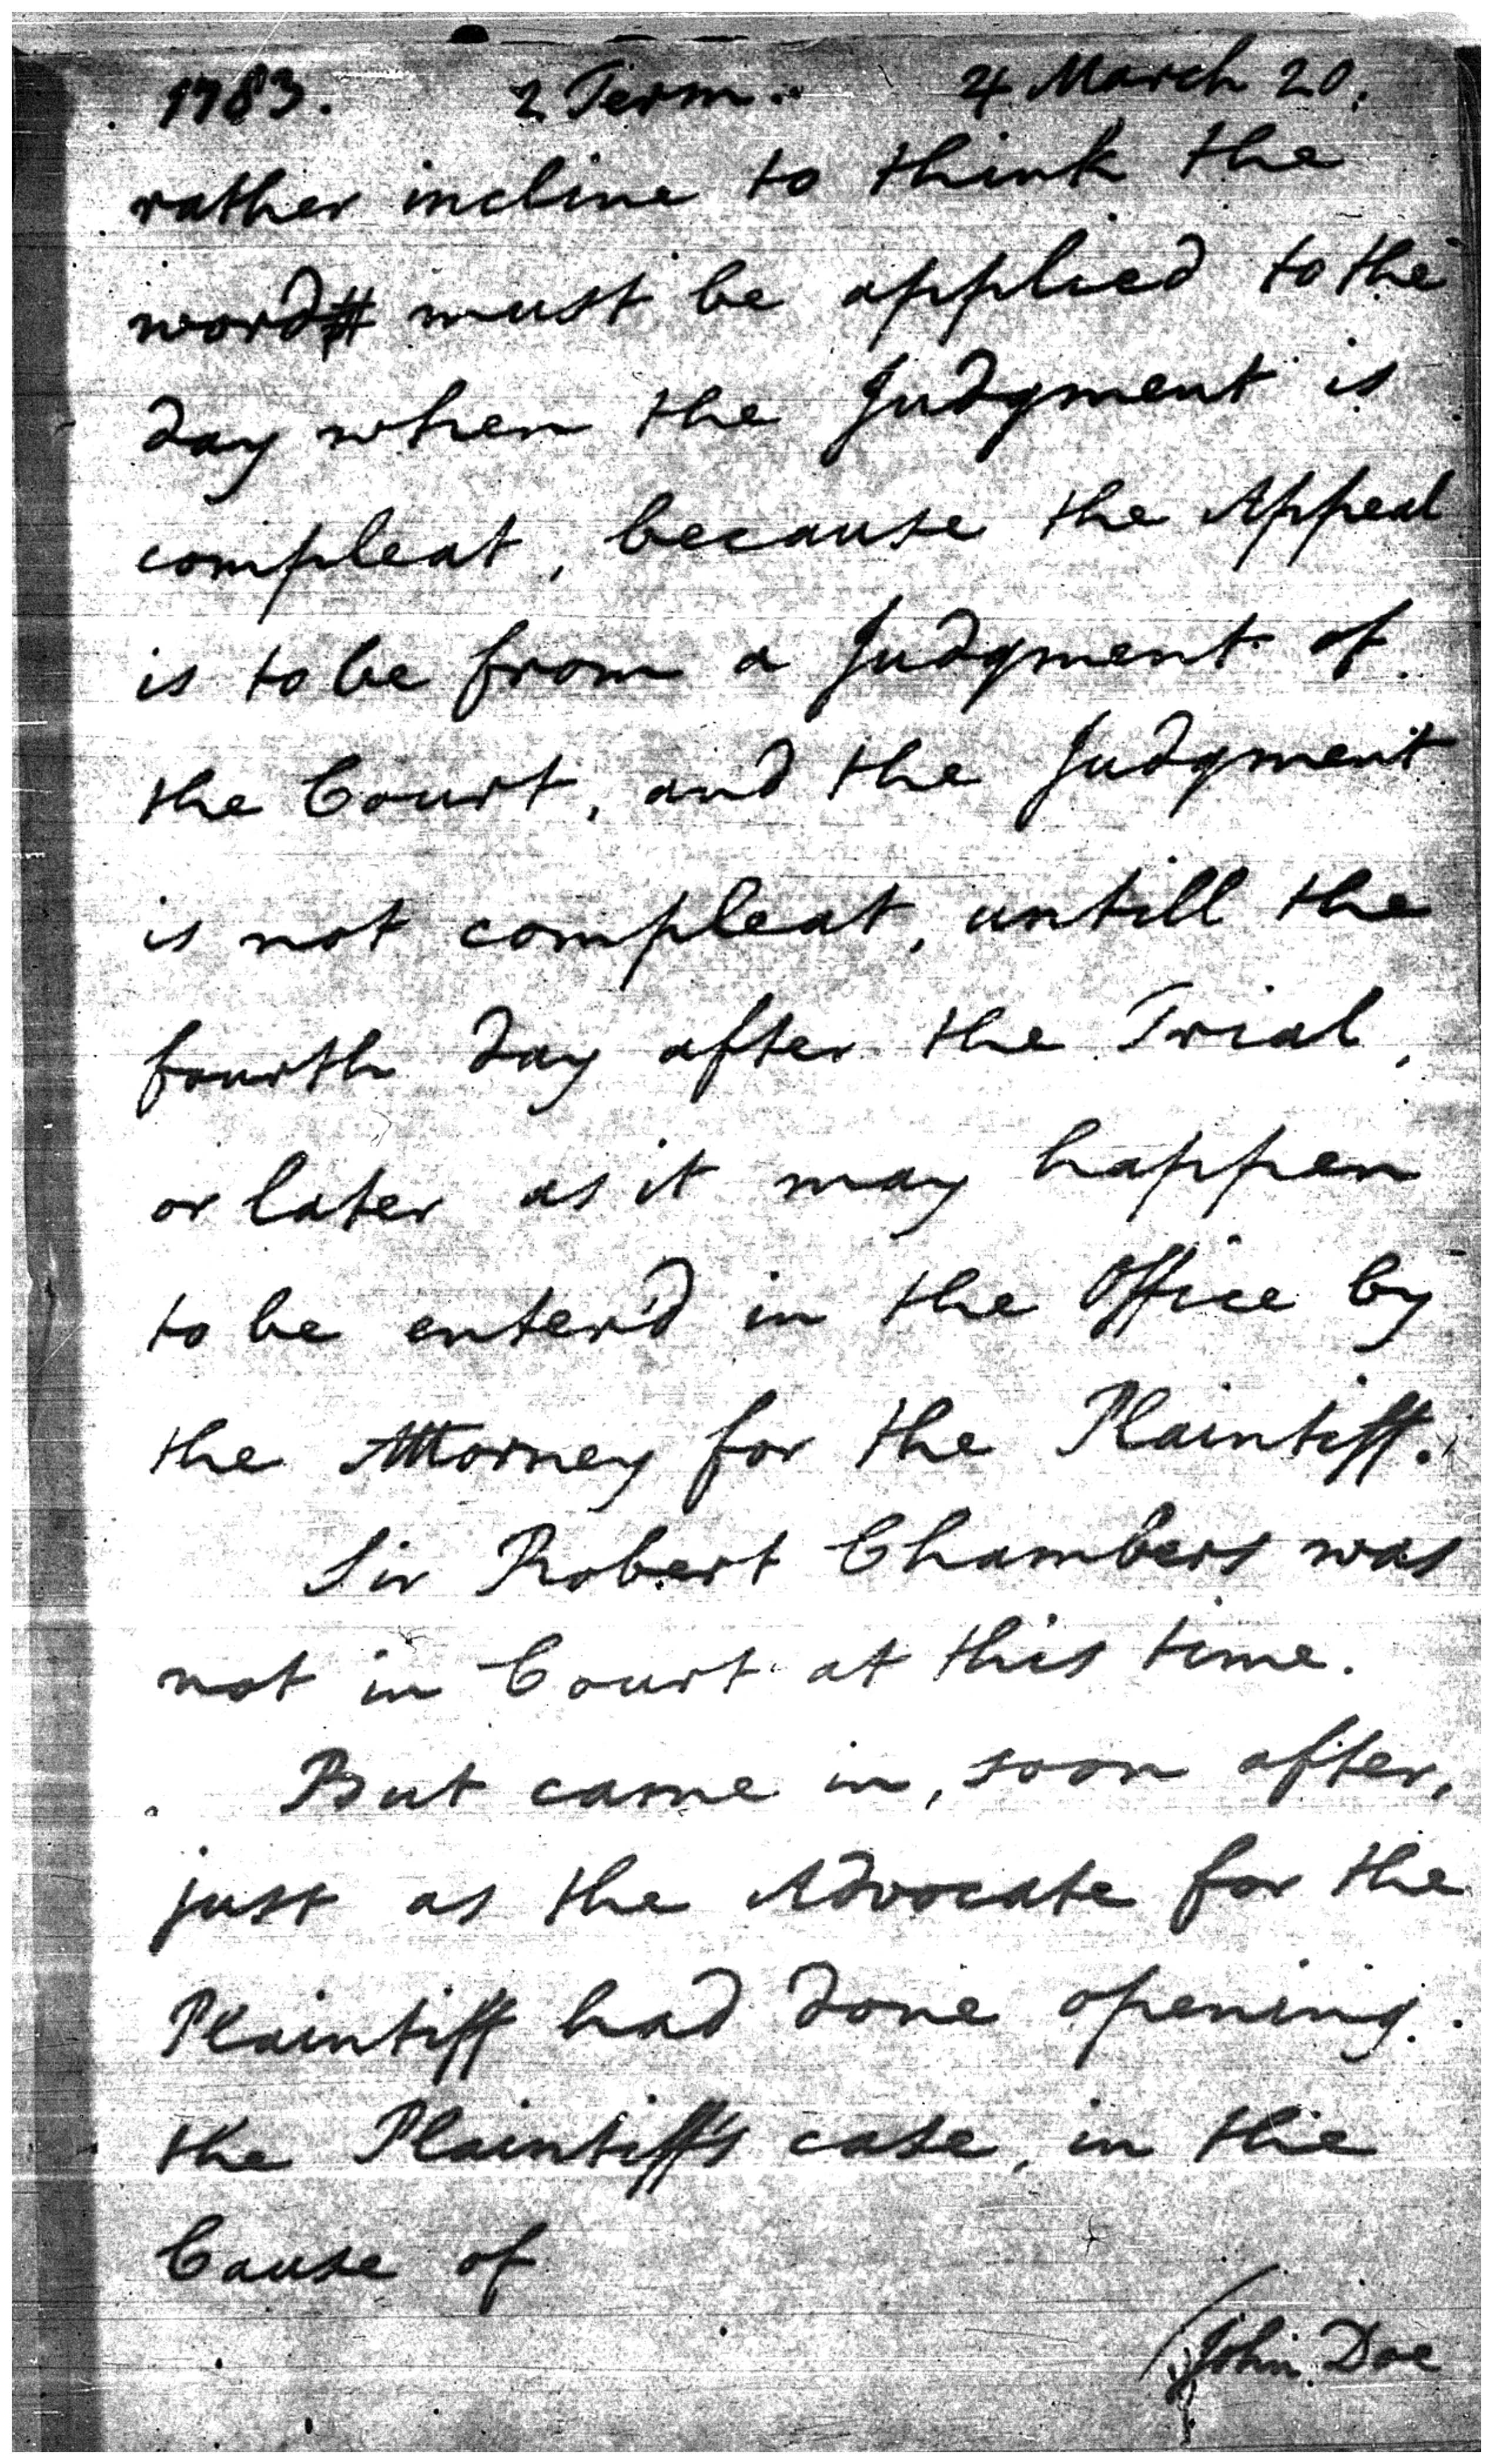 1783. 2 Term. 4 March 20.
rather incline to think the
word must be applied to the
day when the Judgment is
compleat, because the Appeal
is to be from a Judgment of
the Court, and the Judgment
is not compleat, untill the
fourth day after the Trial,
or later as it may happen
to be enter'd in the Office by
the Attorney for the Plaintiff.
Sir Robert Chambers was
not in Court at this time.
But came in, soon after,
just as the Advocate for the
Plaintiff had done opening
the Plaintiff's case, in the
Cause of
(John Doe